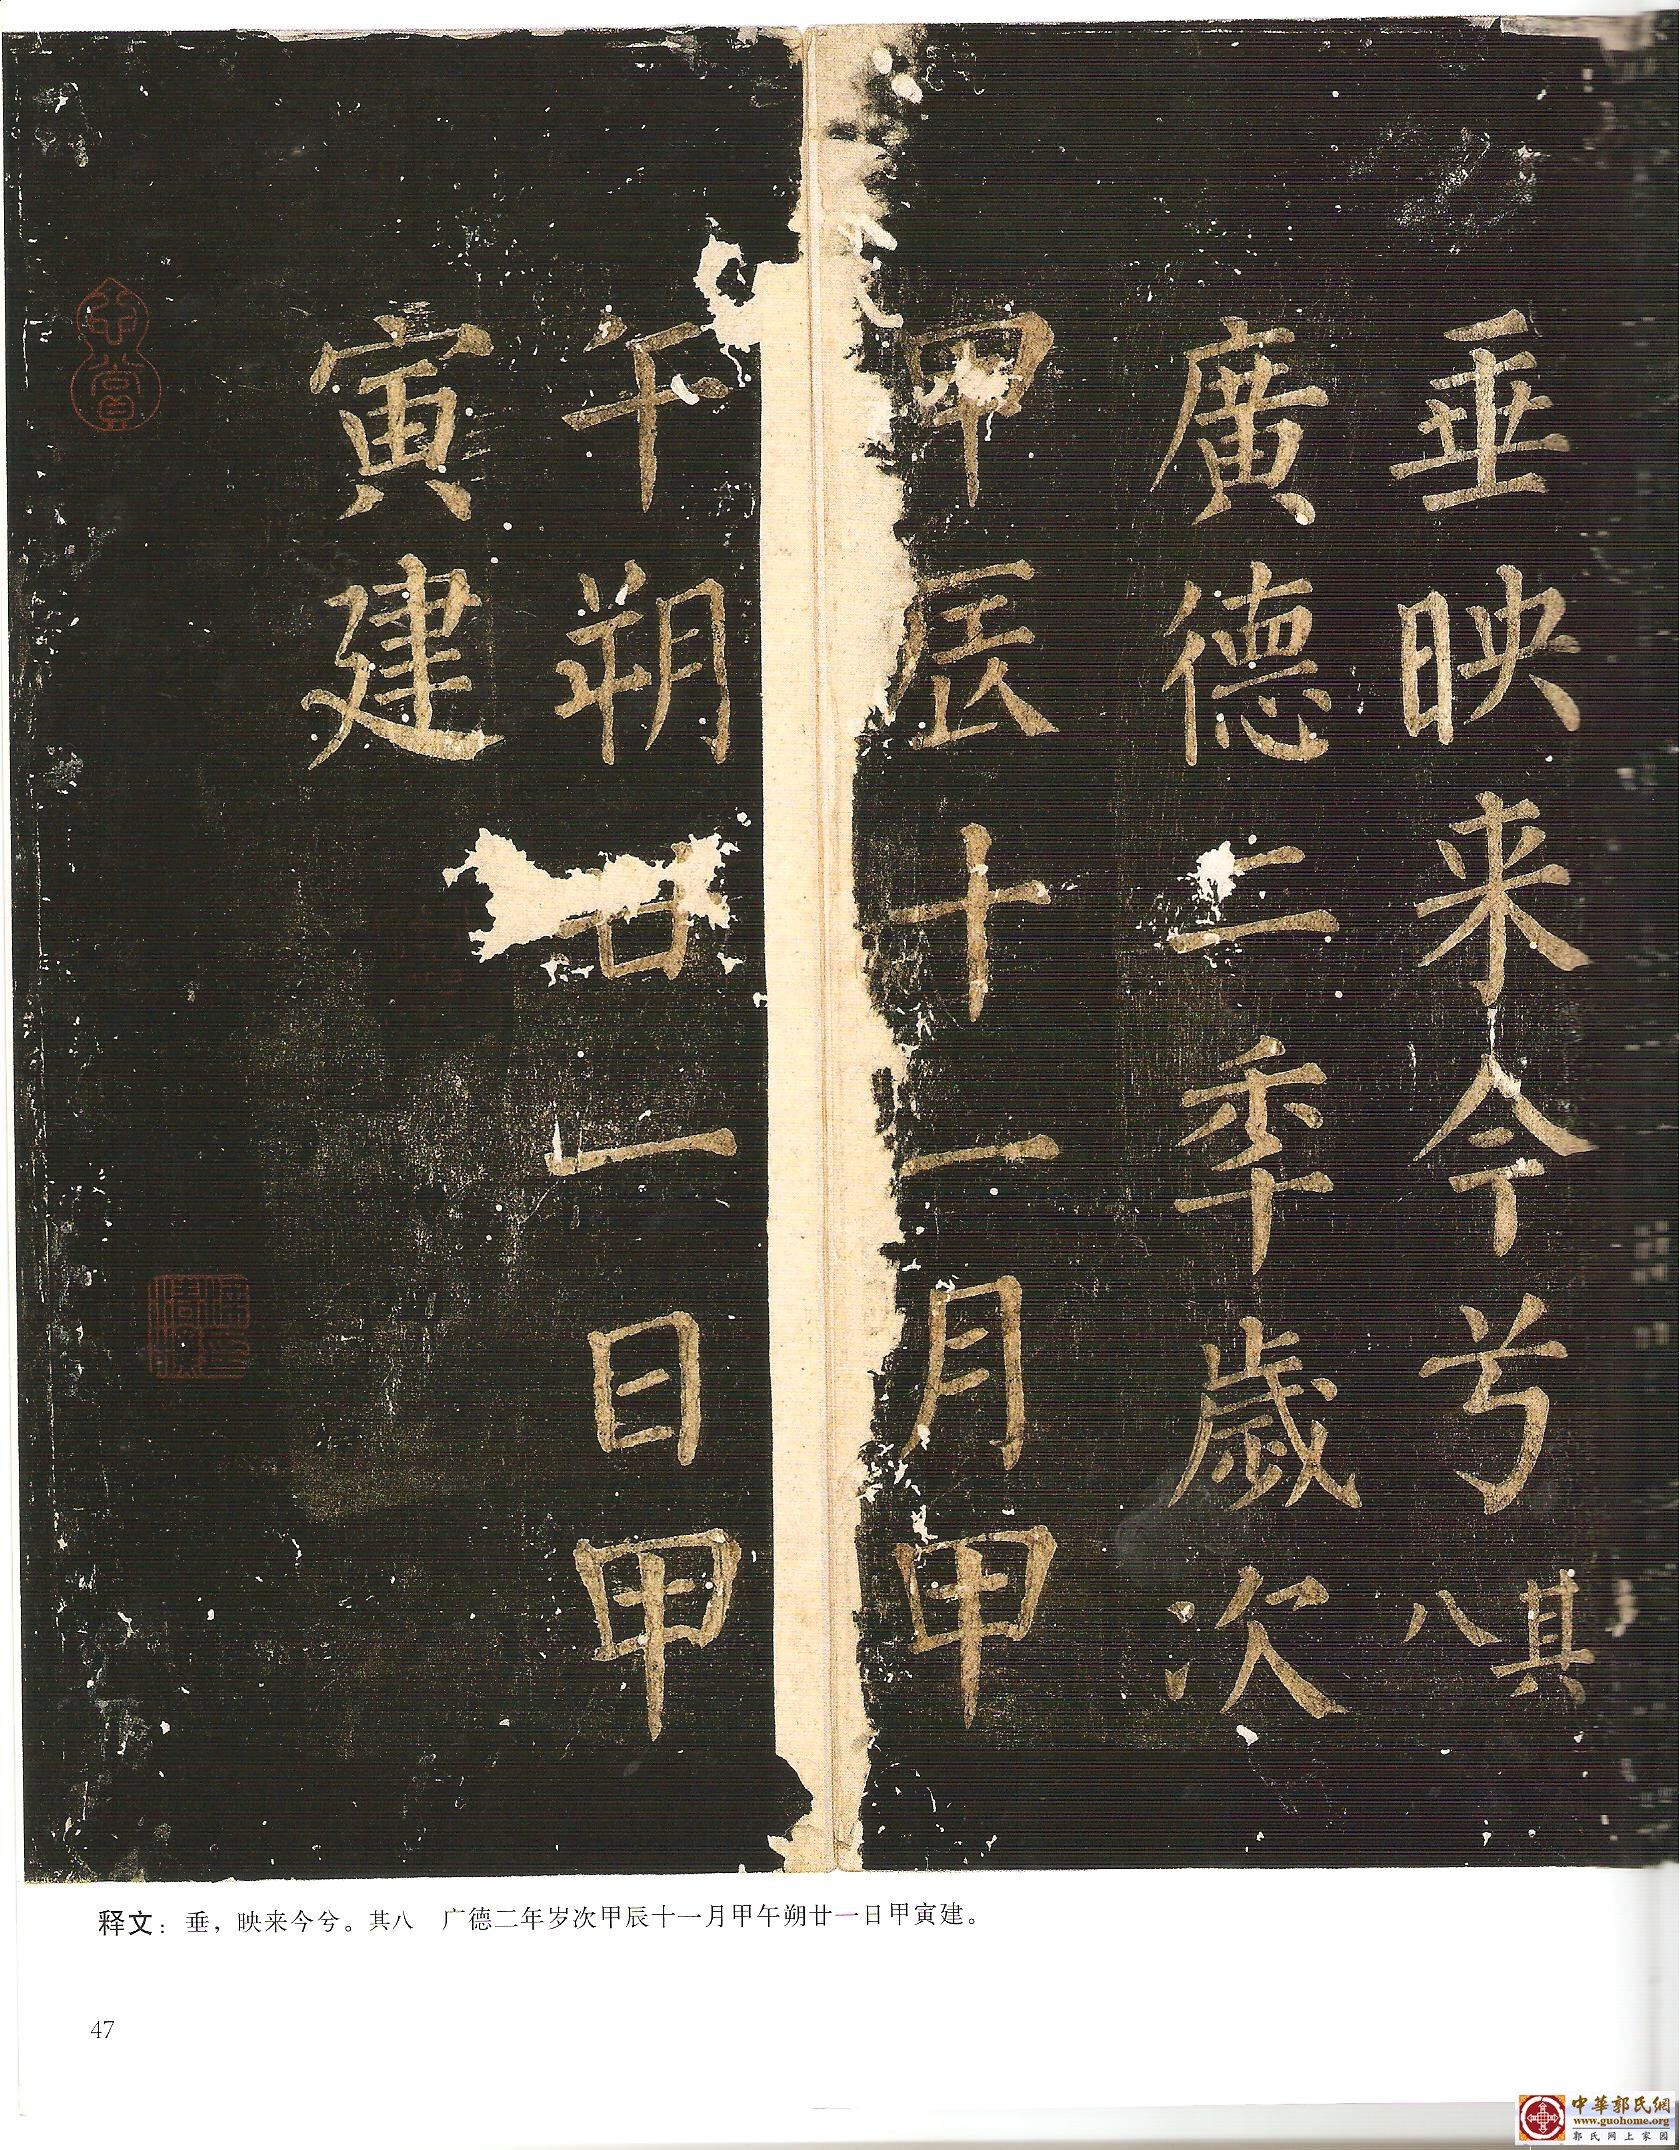 垂映来今兮其八
廣德二年歲次
甲辰十一月甲
午朔廿一日甲
寅建
释文：垂，映来今兮。其八　广德二年岁次甲辰十一月甲午朔廿一日甲寅建。
47
中華郭氏網
www.guohome.org
郭氏网上家园